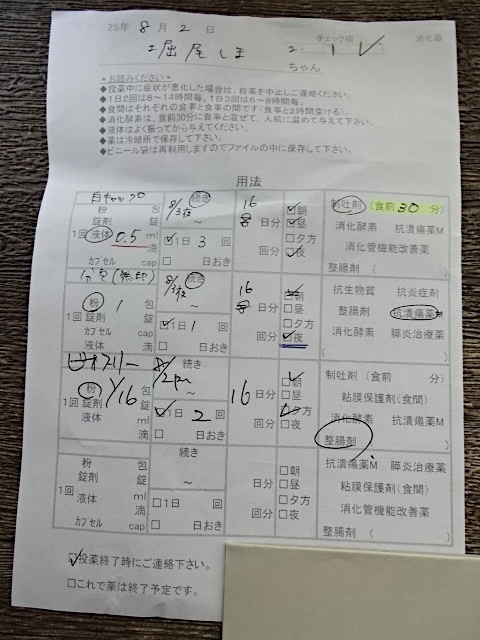 25年 8月 2日
堀尾しま ちゃん
チェック欄 消化器
2. 1
*お読みください*
◆投薬中に症状が悪化した場合は、投薬を中止しご連絡ください。
◆1日2回は8～14時間毎、1日3回は6～8時間毎。
◆食間はそれぞれの食事と食事の間です(食事と2時間空ける)。
◆消化酵素は、食前30分に食事と混ぜて、人肌に温めて与えて下さい。
◆液体はよく振ってから与えてください。
◆薬は冷暗所で保存して下さい。
◆ビニール袋は再利用しますのでファイルの中に保存して下さい。
用法
白キャップ 8/3夜 続き 16 □朝 制吐剤 (食前 30 分)
錠剤 錠 ～ 日分 □昼 消化酵素 抗潰瘍薬M
1回 液体 0.5 ml □1日 3 回 □夕方 消化管機能改善薬
滴 回分 □夜
カプセル cap □ 日おき 整腸剤 ( )
分包(無印) 8/3夜 続き 16 □朝 抗生物質 抗炎症剤
粉 1 包 ～ 日分 □昼 整腸剤 抗潰瘍薬
1回 錠剤 錠 □1日 1 回 □夕方 消化酵素 膵炎治療薬
カプセル cap 回分 □夜
液体 滴 □ 日おき ( )
ビオフリー 8/2pm 続き 16 □朝 制吐剤 (食前 分)
粉 1/16 包 日分 □昼 粘膜保護剤(食間)
1回 錠剤 錠 □1日 2 回 □夕方 消化酵素 抗潰瘍薬M
液体 ml 回分 □夜
滴 □ 日おき 整腸剤 ( )
粉 包 続き □朝 抗潰瘍薬M 膵炎治療薬
錠剤 錠 ～ 日分 □昼 粘膜保護剤(食間)
1回 液体 ml □1日 回 □夕方 消化管機能改善薬
滴 回分 □夜
カプセル cap □ 日おき 整腸剤 ( )
□投薬終了時にご連絡下さい。
□これで薬は終了予定です。